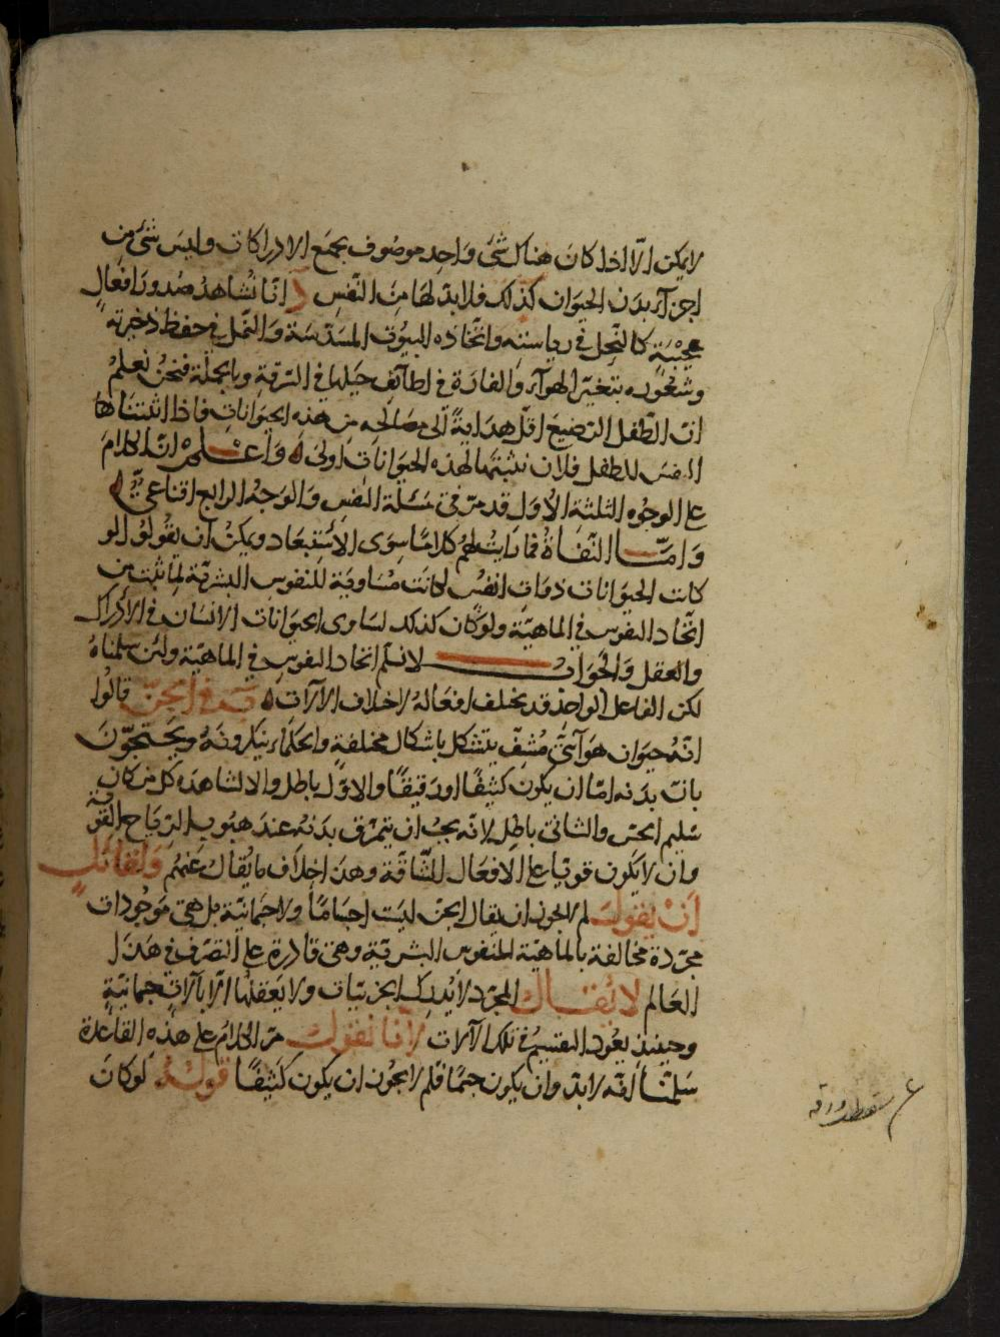 لا يمكن الّا اذا كان هناك شئ واحد موصوف بجمع الادراكات وليس شئ من
اجزآء بدن الحيوان كذلك فلا بد لها من النفس د انا نشاهد صدور افعال
عجيبة كالنحل في رياسته واتخاذه البيوت المسدّسة والنمل في حفظ ذخيرته
وشعوره بتغيّر الهوآء والفارة في لطآئف حيلها في السرقة وبالجملة فنحن نعلم
ان الطفل الرضيع اقل هداية الى مصالحه من هذه الحيوانات فاذا اثبتنا هذا
النفس للطفل فلان نثبتها لهذه الحيوانات اولى واعلم ان الكلام
على الوجوه الثلثة الاول قد مرّ في مسئلة النفس والوجه الرابع اقناعيّ
وامّا النفاة فما رايت لهم كلاما سوى الاستبعاد ويمكن ان يقولوا لو
كانت الحيوانات ذوات انفس لكانت مساوية للنفوس البشرية لما ثبت من
اتحاد النفوس في الماهيّة ولو كان كذلك لساوى الحيوانات الانسان في الادراك
والعقل والجواب لا نسلم اتحاد النفوس في الماهية ولئن سلمناه
لكن الفاعل الواحد قد يختلف افعاله لاختلاف الآلات في الجن قالوا
انه حيوان هوآئيّ مشفّ يتشكل باشكال مختلفة والحكماء ينكرونه ويحتجّون
بان بدنه امّا ان يكون كثيفًا او رقيقًا والاوّل باطل والا لشاهده كل من كان
سليم الحس والثانى باطل لانه يجب ان يتمزق بدنه عند هبوب الرياح القوية
وان لا يكون قويّا على الافعال الشاقة وهذا خلاف ما يقال عنهم ولقائل
ان يقول لم لا يجوز ان يقال الجن ليست اجسامًا ولا جسمانية بل هي موجودات
مجرّدة مخالفة بالماهية للنفوس البشرية وهي قادرة على التصرف في هذا
العالم لا يقال المجرد لا يدرك الجزئيات ولا يعقلها الّا بآلات جسمانية
وحينئذ يعود التقسيم في تلك الآلات لانا نقول مرّ الكلام على هذه القاعدة
سلمنا انه لا بد وان يكون جسمًا فلم لا يجوز ان يكون كثيفًا قوله لو كان
سقط ورقه